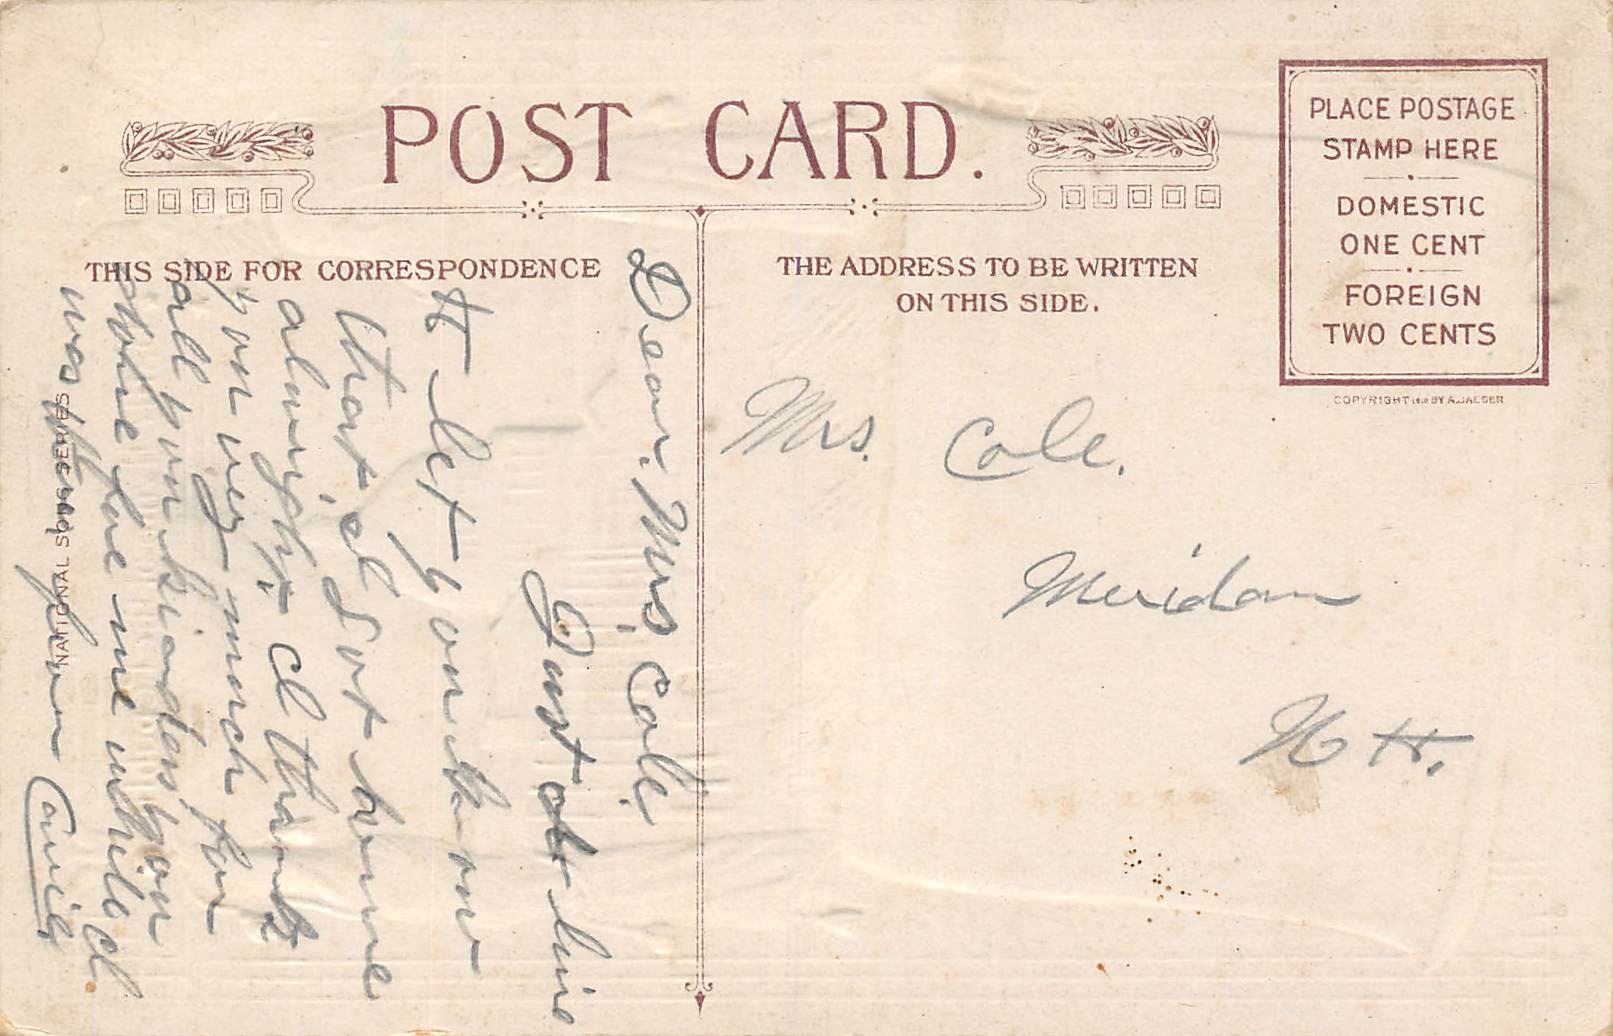 POST CARD.
PLACE POSTAGE
STAMP HERE
DOMESTIC
ONE CENT
FOREIGN
TWO CENTS
COPYRIGHT 1910 BY A. JAEGER
THIS SIDE FOR CORRESPONDENCE
THE ADDRESS TO BE WRITTEN
ON THIS SIDE.
NATIONAL SONG SERIES
Dear. Mrs. Cole.
Just a line
to let you know
that, I Got home
alright. I thank
you very much for
all you kindess you
shone for me while I
was
Mrs. Cole.
Meridan
N H.